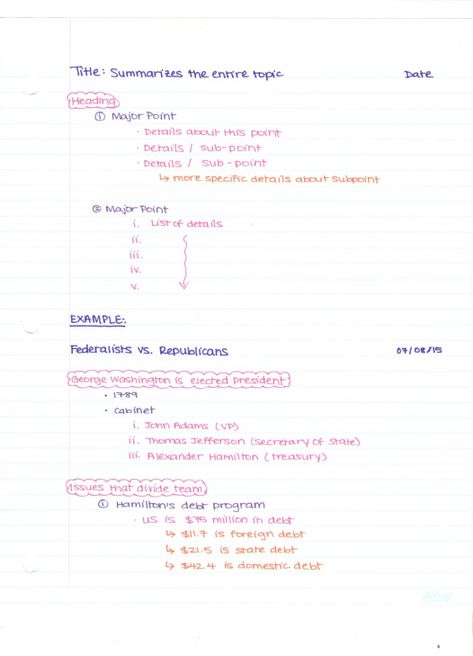 Title: Summarizes the entire topic Date
Heading
① Major Point
· Details about this point
· Details / sub-point
· Details / sub-point
↳ more specific details about subpoint
② Major Point
i. List of details
ii.
iii.
iv.
v.
EXAMPLE:
Federalists vs. Republicans 07/08/15
George Washington is elected president
• 1789
• cabinet
i. John Adams (VP)
ii. Thomas Jefferson (Secretary of State)
iii. Alexander Hamilton (treasury)
Issues that divide team
① Hamilton's debt program
· US is $75 million in debt
↳ $11.7 is foreign debt
↳ $21.5 is state debt
↳ $42.4 is domestic debt